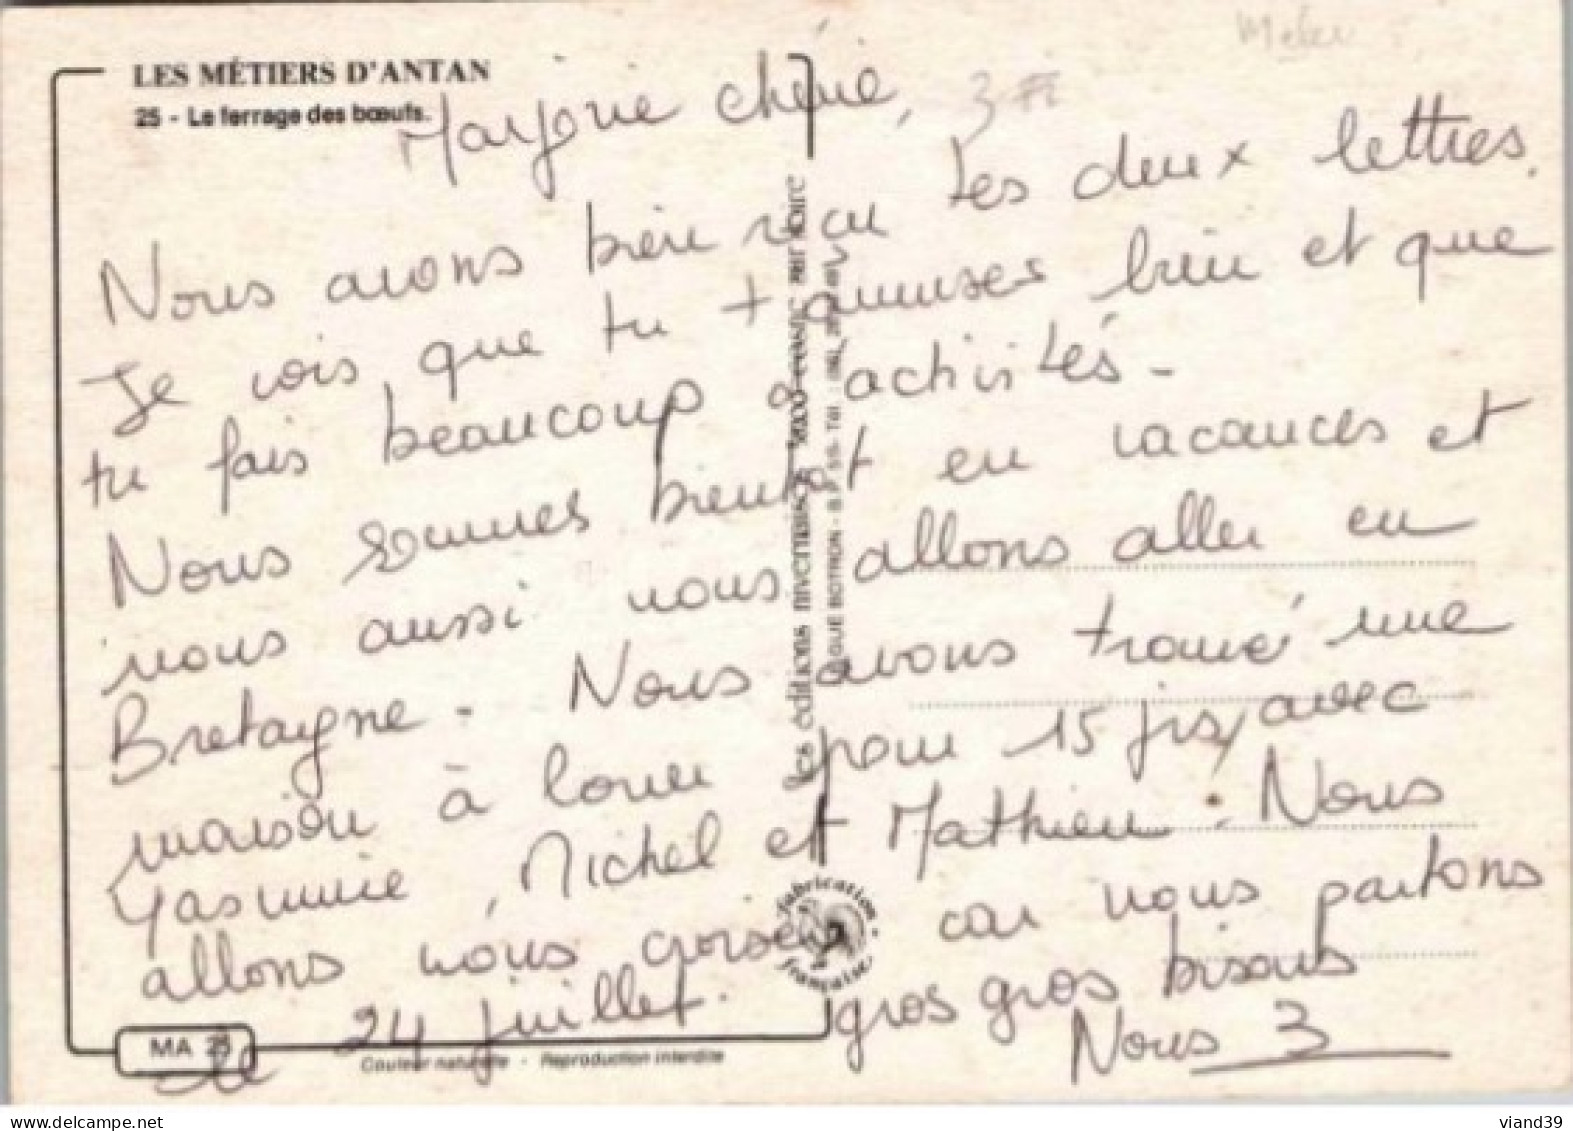 LES MÉTIERS D'ANTAN
25 - Le ferrage des bœufs.
3 F
Marjorie chérie,
Nous avons bien reçu tes deux lettres.
Je vois que tu t'amuses bien et que
tu fais beaucoup d'activités -
Nous sommes bientôt en vacances et
nous aussi nous allons aller en
Bretagne - Nous avons trouvé une
maison à louer pour 15 jrs, avec
Yasmine, Michel et Mathieu. Nous
allons nous croiser car nous partons
le 24 juillet. gros gros bisous
Nous 3
les éditions nivernaises 5800 cosne sur loire
BOTRON - B.P. 55 - Tél.
fabrication française
MA 25
Couleur naturelle - Reproduction interdite
viand39